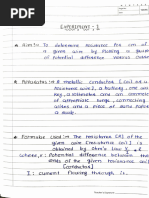 Date
EXPERIMENT : 1
* Aim :- To determine resistance per cm of
a given wire by plotting a graph
of potential difference versus current
* Apparatus :- A metallic conductor (coil or a
resistance wire), a battery, one way
key, a voltmeter and an ammeter
of appropriate range, connecting
wires and a piece of sand paper,
a scale.
* Formulae Used :- The resistance (R) of the
given wire (resistance coil) is
obtained by Ohm's Law V/I = R
where, V : Potential difference between the
ends of the given resistance
coil.
I : current flowing through it.